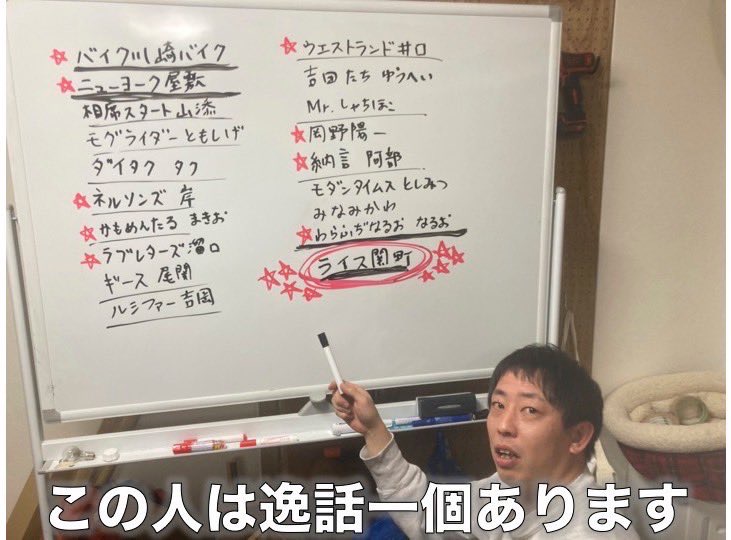 ☆バイク川崎バイク
☆ニューヨーク屋敷
相席スタート山添
モグライダーともしげ
ダイタク タク
☆ネルソンズ 岸
☆かもめんたる まきお
☆ラブレターズ溜口
ギース 尾関
ルシファー吉岡
☆ウエストランド井口
吉田たち ゆうへい
Mr.しゃちほこ
☆岡野陽一
☆納言 阿部
モダンタイムスとしみつ
みなみかわ
☆わらふぢなるお なるお
ライス関町
この人は逸話一個あります